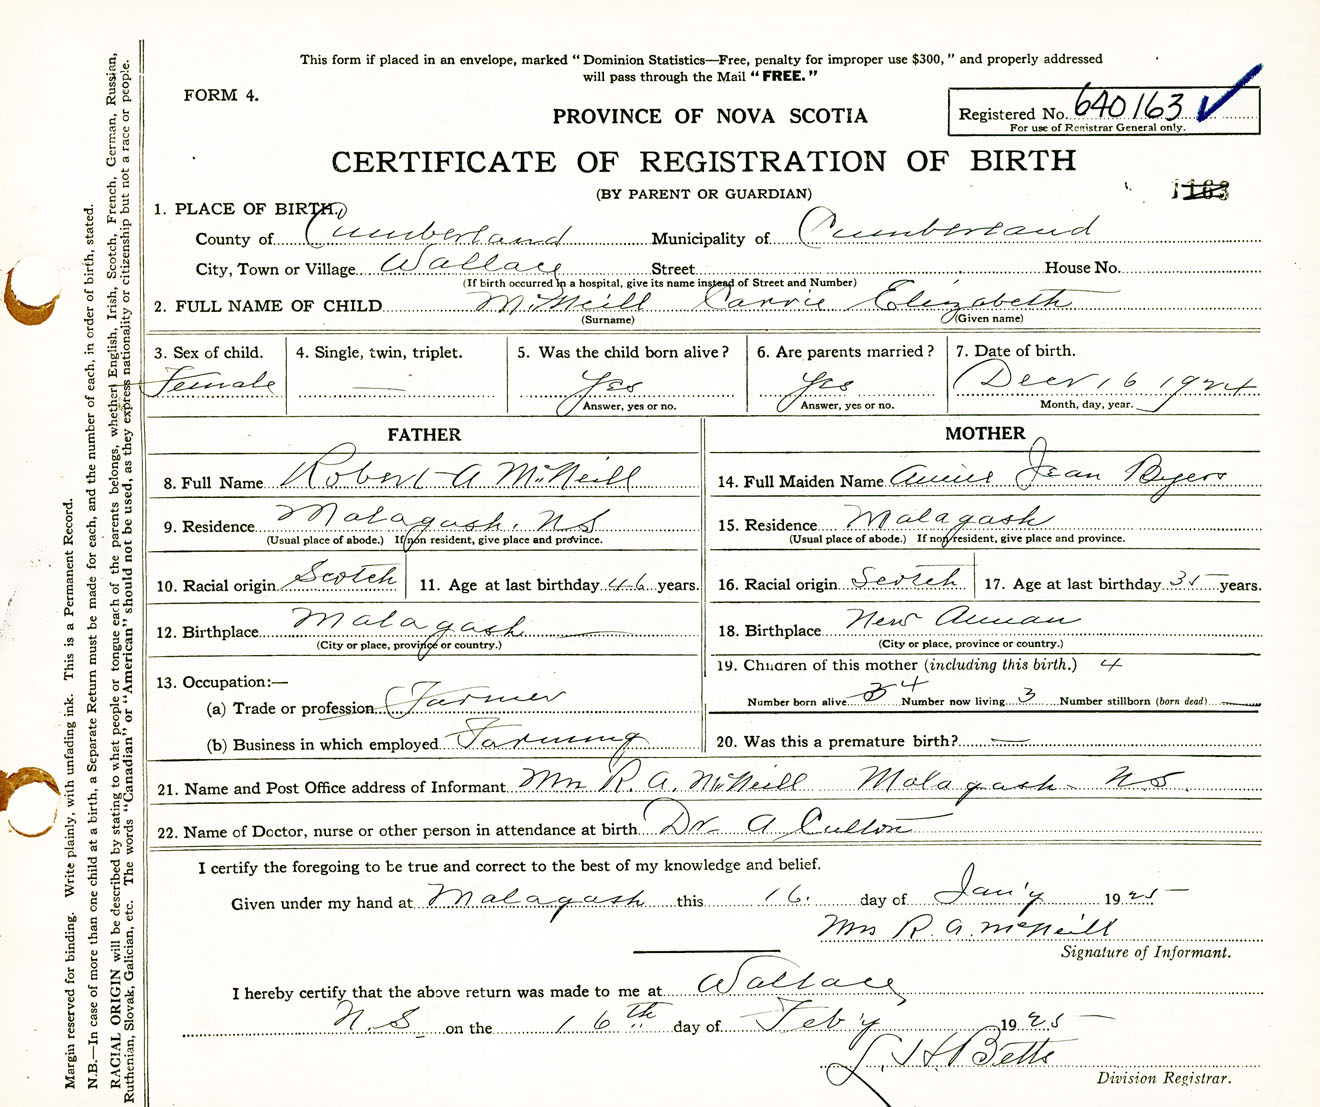 This form if placed in an envelope, marked "Dominion Statistics—Free, penalty for improper use $300," and properly addressed
will pass through the Mail "FREE."
FORM 4.
PROVINCE OF NOVA SCOTIA
Registered No. 640163
For use of Registrar General only.
CERTIFICATE OF REGISTRATION OF BIRTH
(BY PARENT OR GUARDIAN)
1163
1. PLACE OF BIRTH.
County of Cumberland Municipality of Cumberland
City, Town or Village Wallace Street House No.
(If birth occurred in a hospital, give its name instead of Street and Number)
2. FULL NAME OF CHILD McNeill Carrie Elizabeth
(Surname) (Given name)
3. Sex of child. 4. Single, twin, triplet. 5. Was the child born alive? 6. Are parents married? 7. Date of birth.
Female — Yes Yes Decr 16 1924
Answer, yes or no. Answer, yes or no. Month, day, year.
FATHER MOTHER
8. Full Name Robert A McNeill 14. Full Maiden Name Annie Jean Byers
9. Residence Malagash. NS 15. Residence Malagash
(Usual place of abode.) If non resident, give place and province. (Usual place of abode.) If non resident, give place and province.
10. Racial origin Scotch 11. Age at last birthday 46 years. 16. Racial origin Scotch 17. Age at last birthday 35 years.
12. Birthplace Malagash 18. Birthplace New Annan
(City or place, province or country.) (City or place, province or country.)
19. Children of this mother (including this birth.) 4
13. Occupation:—
Number born alive 3 4 Number now living 3 Number stillborn (born dead) —
(a) Trade or profession Farmer
(b) Business in which employed Farming 20. Was this a premature birth? —
21. Name and Post Office address of Informant Mrs R. A. McNeill Malagash N.S.
22. Name of Doctor, nurse or other person in attendance at birth Dr. A Cullton
I certify the foregoing to be true and correct to the best of my knowledge and belief.
Given under my hand at Malagash this 16. day of Jan'y 1925
Mrs R. A. McNeill
Signature of Informant.
I hereby certify that the above return was made to me at Wallace,
N.S. on the 16th day of Feb'y 1925
Betts
Division Registrar.
Margin reserved for binding. Write plainly, with unfading ink. This is a Permanent Record.
N.B.—In case of more than one child at a birth, a Separate Return must be made for each, and the number of each, in order of birth, stated.
RACIAL ORIGIN will be described by stating to what people or tongue each of the parents belongs, whether English, Irish, Scotch, French, German, Russian,
Ruthenian, Slovak, Galician, etc. The words "Canadian" or "American" should not be used, as they express nationality or citizenship but not a race or people.